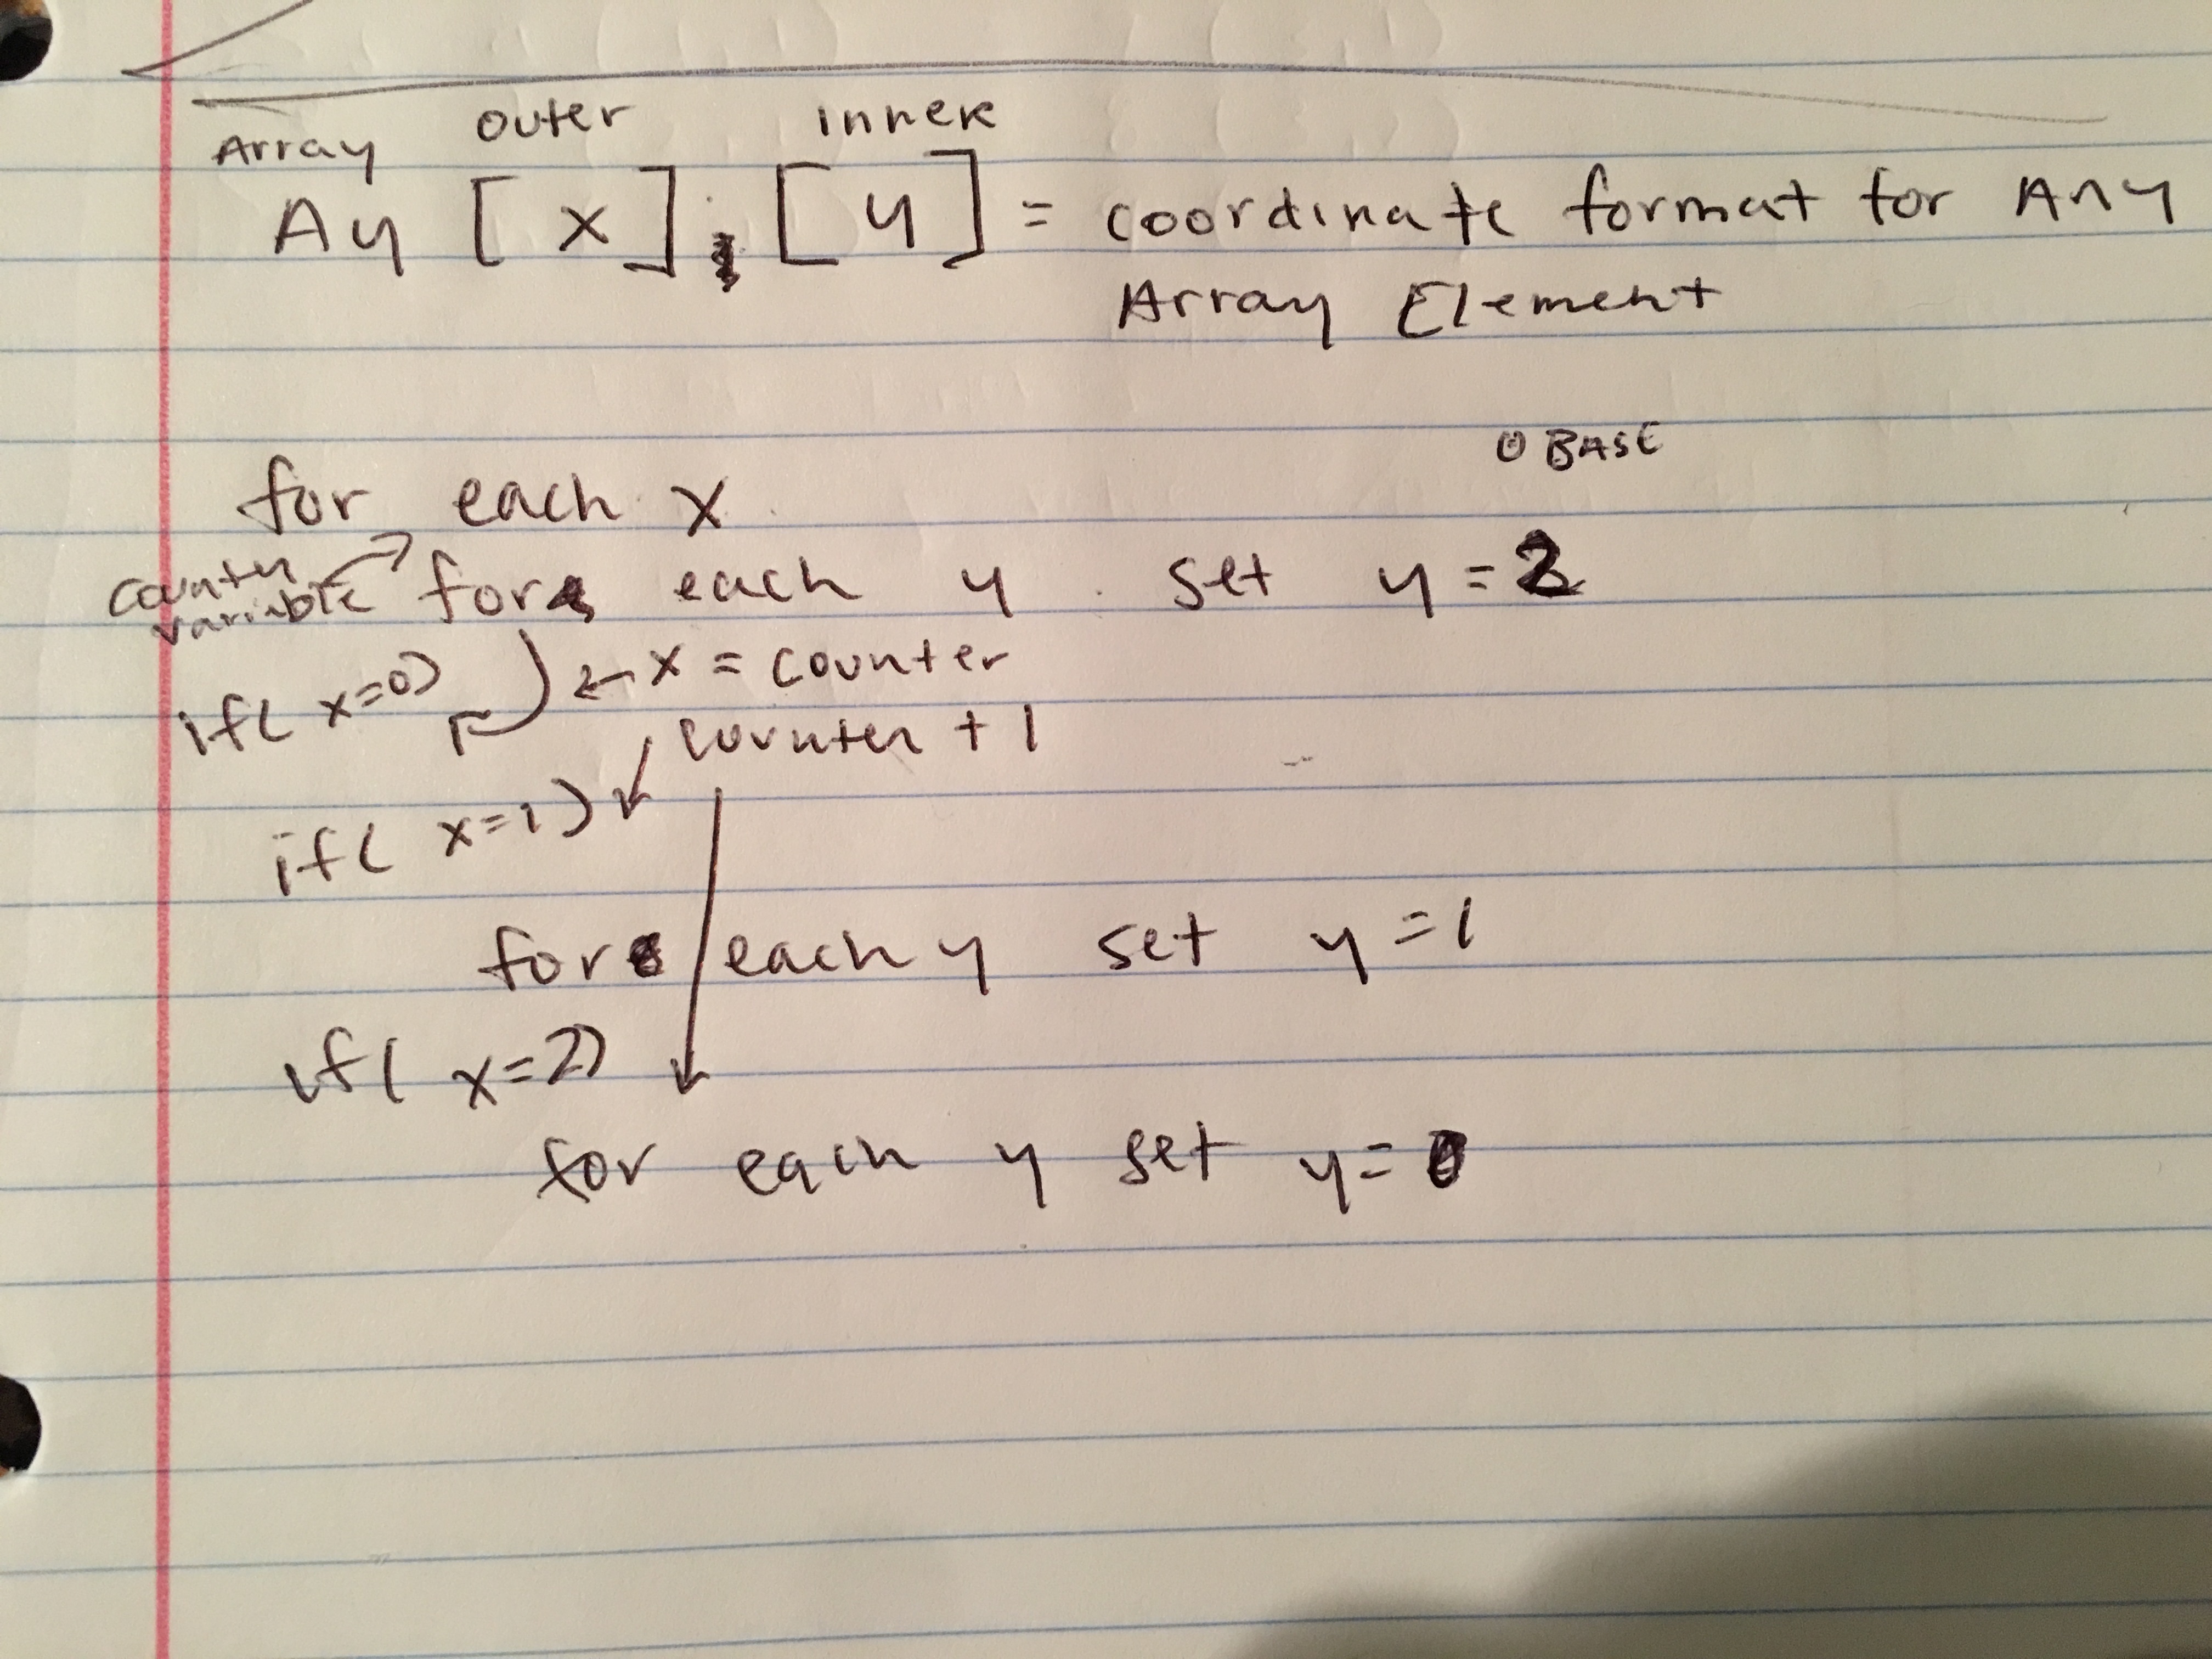 Array outer inner
Ay [ x ], [ y ] = coordinate format for Any
Array Element
0 BASE
for each x
counter
variable
for each y set y = 2
if( x=0) x = counter
counter + 1
if( x=1)
for each y set y = 1
if( x=2)
for each y set y = 0